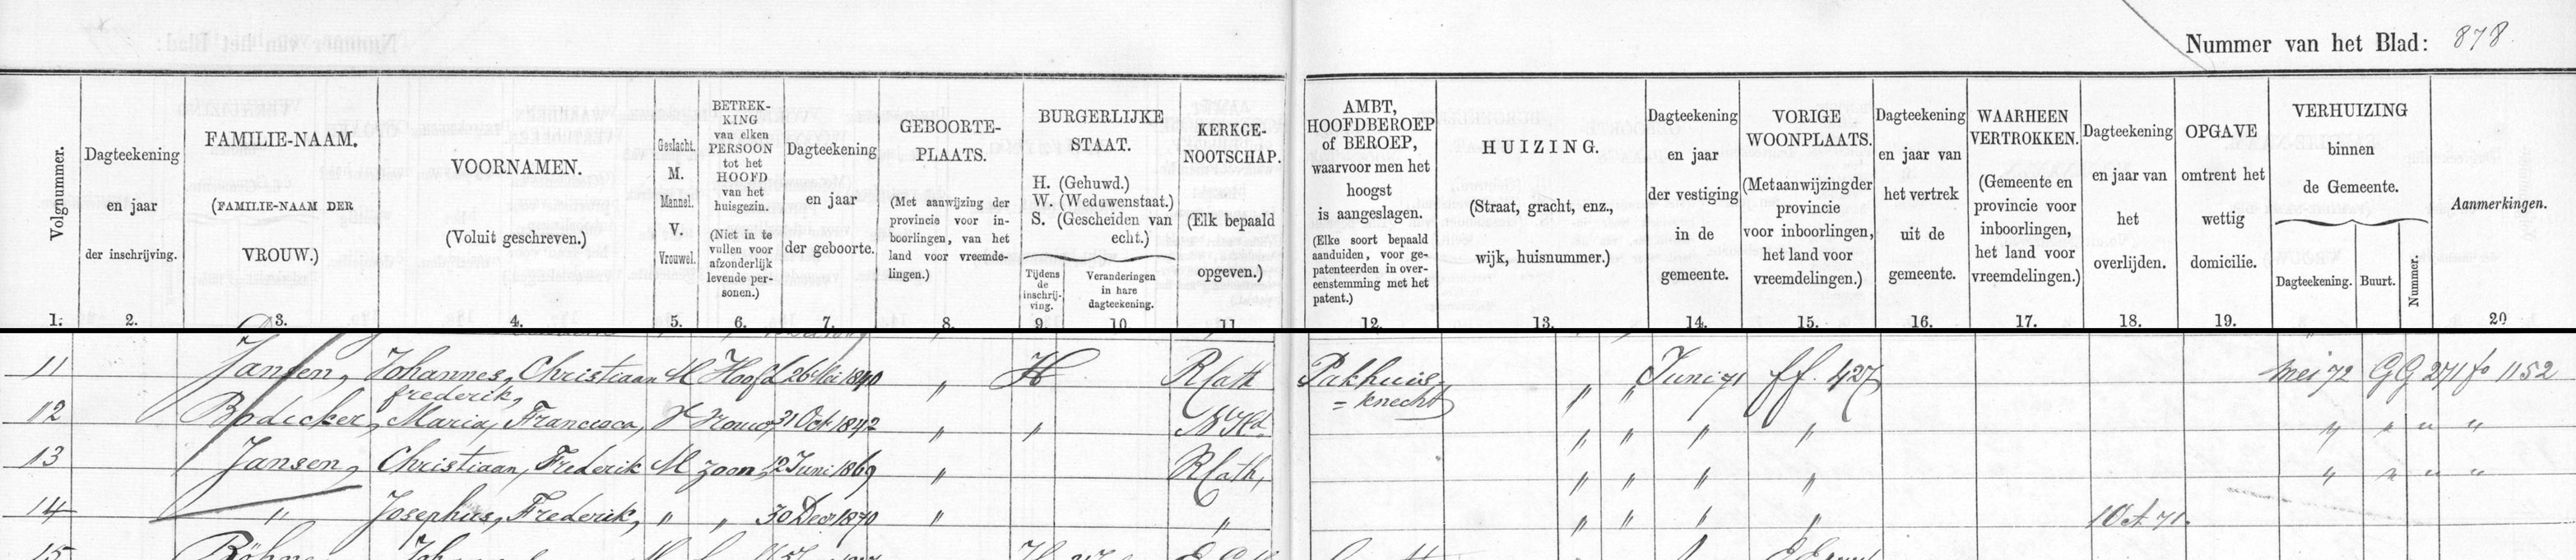 Nummer van het Blad: 878
Volgnummer.
Dagteekening
en jaar
der inschrijving.
FAMILIE-NAAM.
(FAMILIE-NAAM DER
VROUW.)
VOORNAMEN.
(Voluit geschreven.)
Geslacht.
M.
Mannel.
V.
Vrouwel.
BETREK-
KING
van elken
PERSOON
tot het
HOOFD
van het
huisgezin.
(Niet in te
vullen voor
afzonderlijk
levende per-
sonen.)
Dagteekening
en jaar
der geboorte.
GEBOORTE-
PLAATS.
(Met aanwijzing der
provincie voor in-
boorlingen, van het
land voor vreemde-
lingen.)
BURGERLIJKE
STAAT.
H. (Gehuwd.)
W. (Weduwenstaat.)
S. (Gescheiden van
echt.)
Tijdens
de
inschrij-
ving.
Veranderingen
in hare
dagteekening.
KERKGE-
NOOTSCHAP.
(Elk bepaald
opgeven.)
AMBT,
HOOFDBEROEP
of BEROEP,
waarvoor men het
hoogst
is aangeslagen.
(Elke soort bepaald
aanduiden, voor ge-
patenteerden in over-
eenstemming met het
patent.)
HUIZING.
(Straat, gracht, enz.,
wijk, huisnummer.)
Dagteekening
en jaar
der vestiging
in de
gemeente.
VORIGE
WOONPLAATS.
(Met aanwijzing der
provincie
voor inboorlingen,
het land voor
vreemdelingen.)
Dagteekening
en jaar van
het vertrek
uit de
gemeente.
WAARHEEN
VERTROKKEN.
(Gemeente en
provincie voor
inboorlingen,
het land voor
vreemdelingen.)
Dagteekening
en jaar van
het
overlijden.
OPGAVE
omtrent het
wettig
domicilie.
VERHUIZING
binnen
de Gemeente.
Dagteekening.
Buurt.
Nummer.
Aanmerkingen.
1. 2. 3. 4. 5. 6. 7. 8. 9. 10. 11. 12. 13. 14. 15. 16. 17. 18. 19. 20
11 Jansen, Johannes, Christiaan M Hoofd 26 Mei 1840 " H RCath Pakhuis- " " Juni 71 ff. 427 Mei 72 GG 271 fo 1152
frederik, = knecht
12 Bodicker, Maria, Francisca, V Vrouw, 31 Oct 1842 " " N Hd. " " " " " " " "
13 Jansen, Christiaan, Frederik M zoon 12 Juni 1869 " RCath, " " " " " " " "
14 " Josephus, Frederik, " " 30 Decr 1870 " " " " " " 10 A 71.